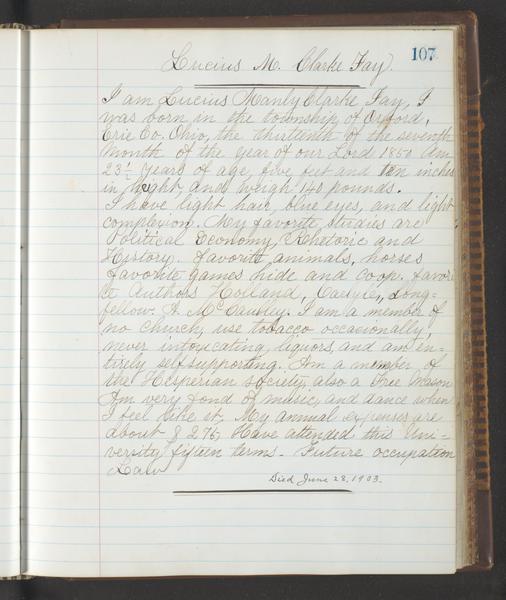 107
Lucius M. Clarke Fay.
I am Lucius Manly Clarke Fay, I
was born in the township of Oxford,
Erie Co. Ohio, the thirteenth of the seventh
month of the year of our Lord 1850. Am
23½ years of age, five feet and ten inches
in height, and weigh 140 pounds.
I have light hair, blue eyes, and light
complexion. My favorite studies are
Political Economy, Rhetoric and
History. favorite animals, horses
favorite games hide and coop. favori
te Authors Holland, Carlyle, Long-
fellow & McCauley. I am a member of
no church, use tobacco occasionally,
never intoxicating liquors, and am en-
tirely self supporting. Am a member of
the Hesperian society, also a Free Mason
Am very fond of music, and dance when
I feel like it. My annual expenses are
about $275, Have attended this Uni-
versity fifteen terms. Future occupation
Law
Died June 28, 1903.